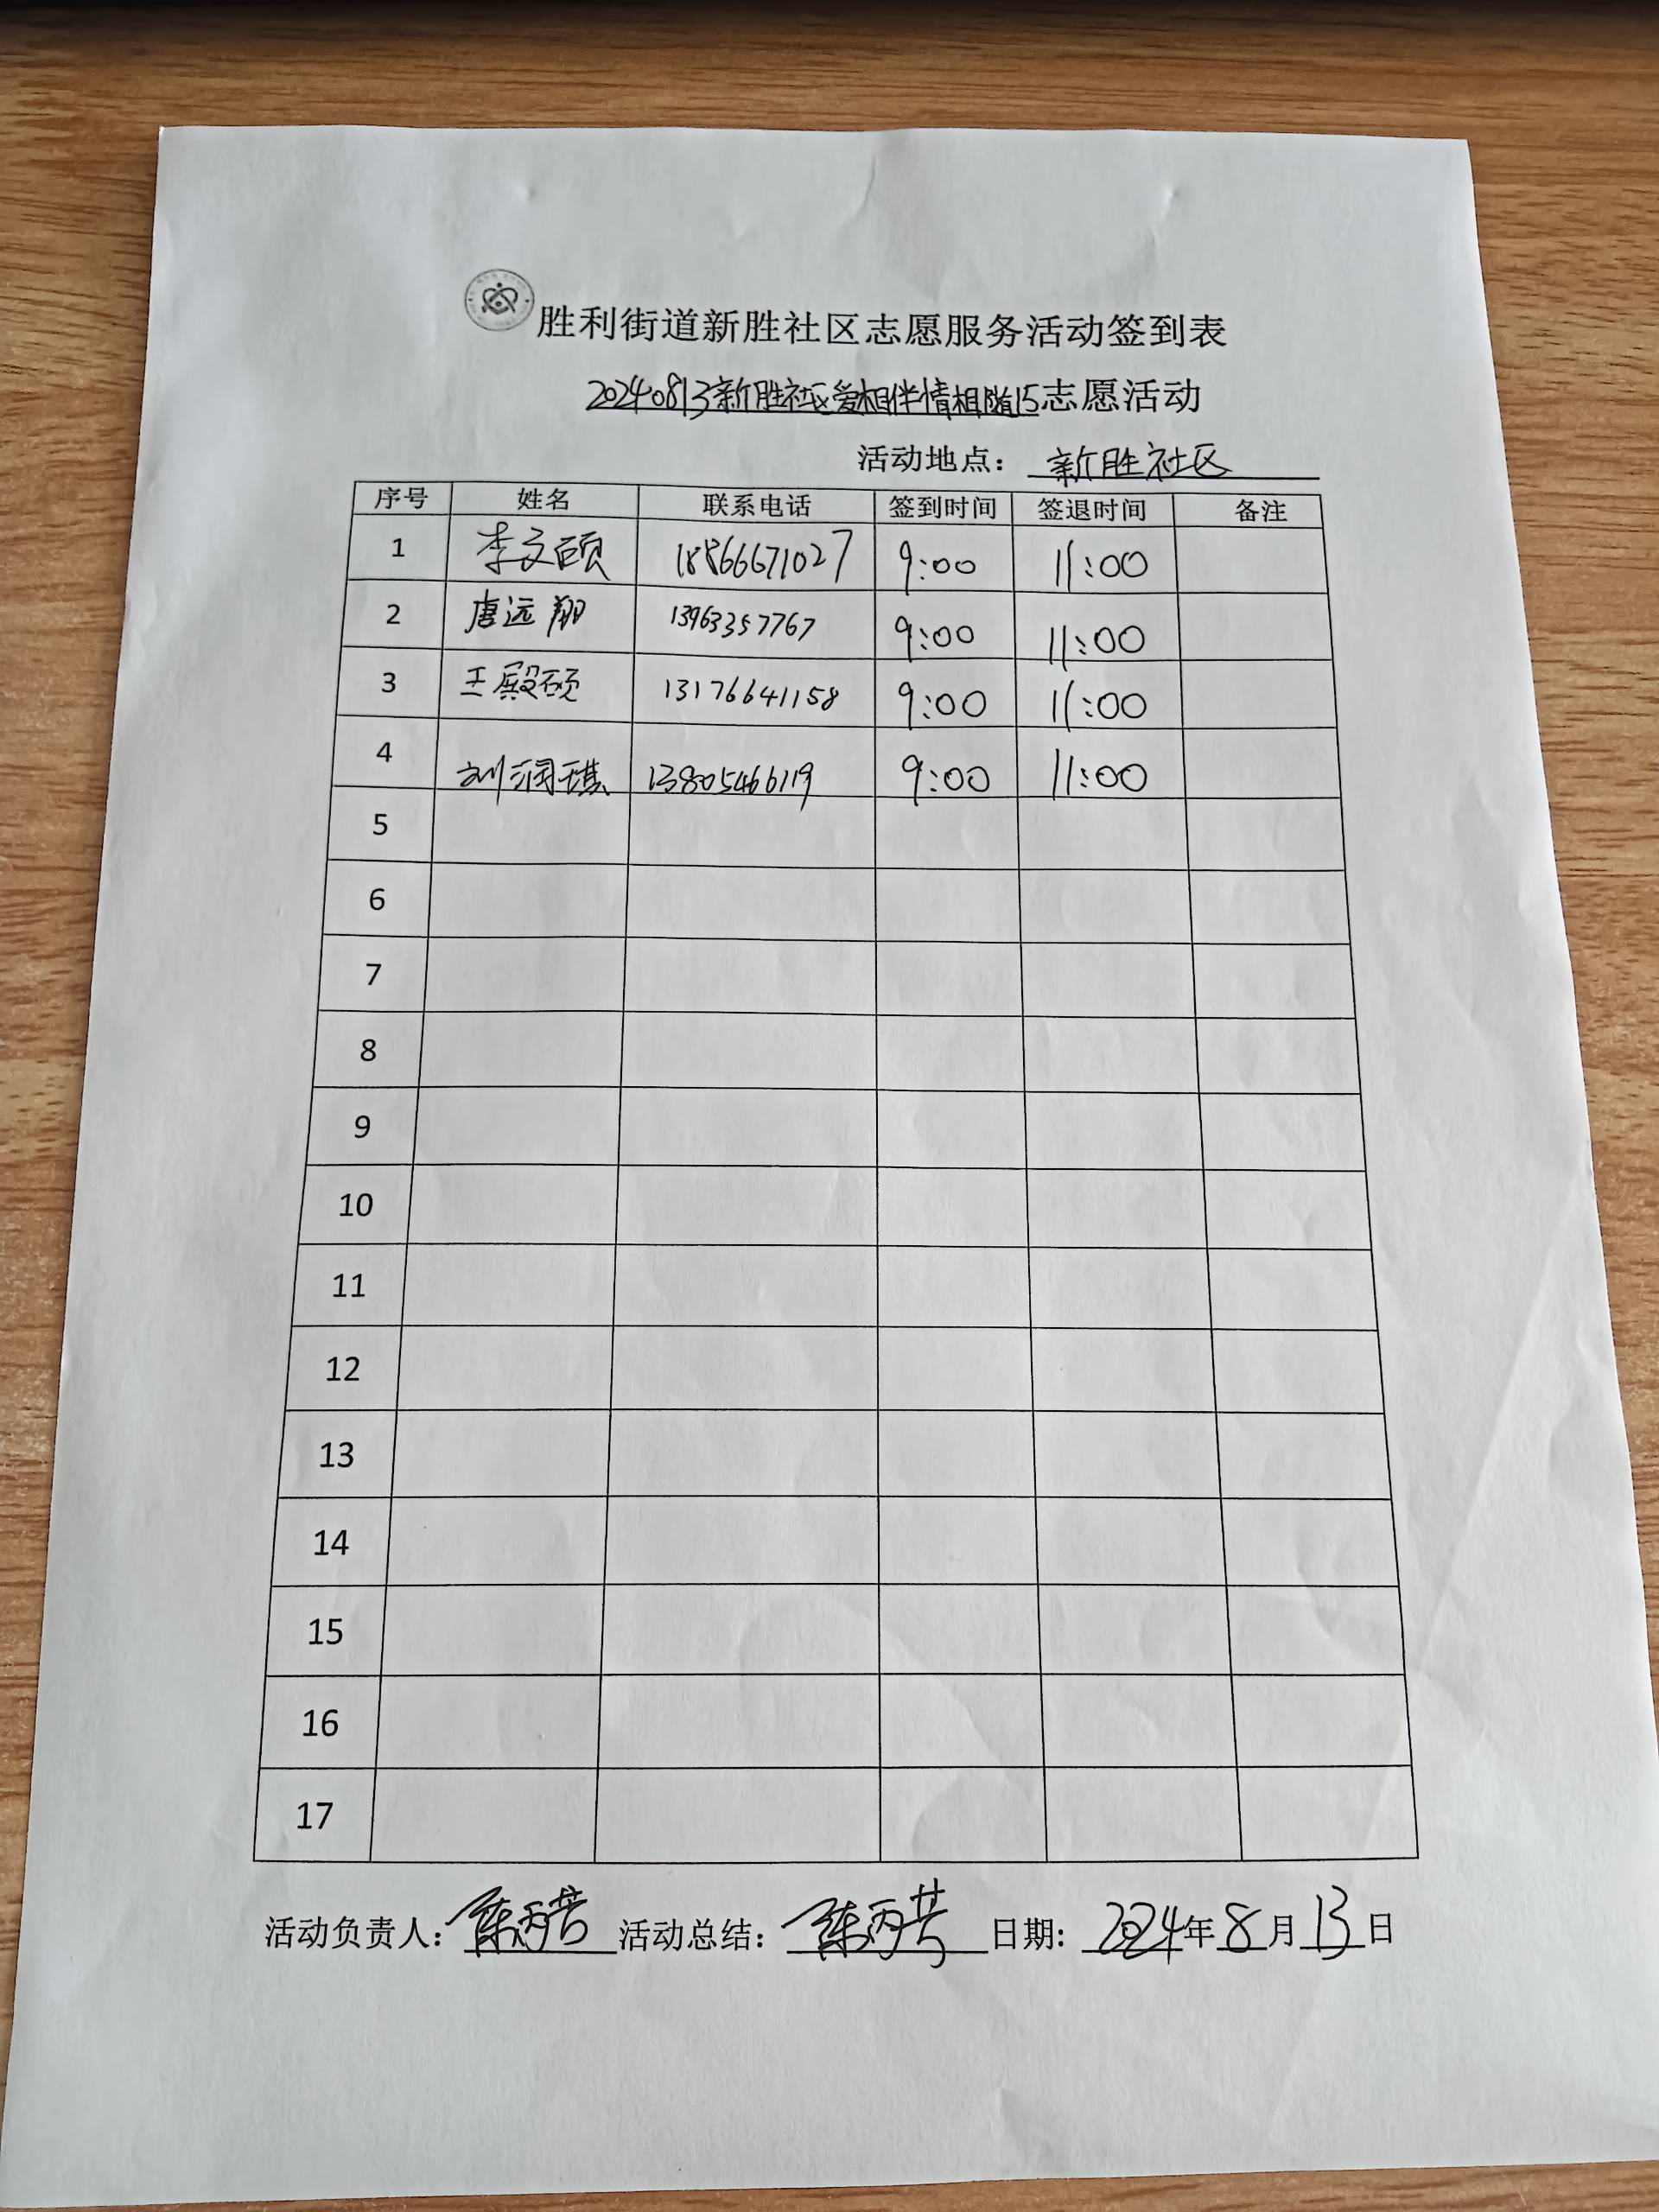 胜利街道新胜社区志愿服务活动签到表
20240813新胜社区爱相伴情相随15志愿活动
活动地点：新胜社区
序号 姓名 联系电话 签到时间 签退时间 备注
1 李文硕 18866671027 9:00 11:00
2 唐远翔 13963357767 9:00 11:00
3 王殿硕 13176641158 9:00 11:00
4 刘润琪 13805466119 9:00 11:00
5
6
7
8
9
10
11
12
13
14
15
16
17
活动负责人：陈丙芸 活动总结：陈丙芸 日期：2024年8月13日